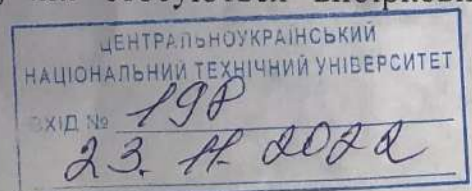 ЦЕНТРАЛЬНОУКРАЇНСЬКИЙ
НАЦІОНАЛЬНИЙ ТЕХНІЧНИЙ УНІВЕРСИТЕТ
ВХІД № 198
23. 11. 2022